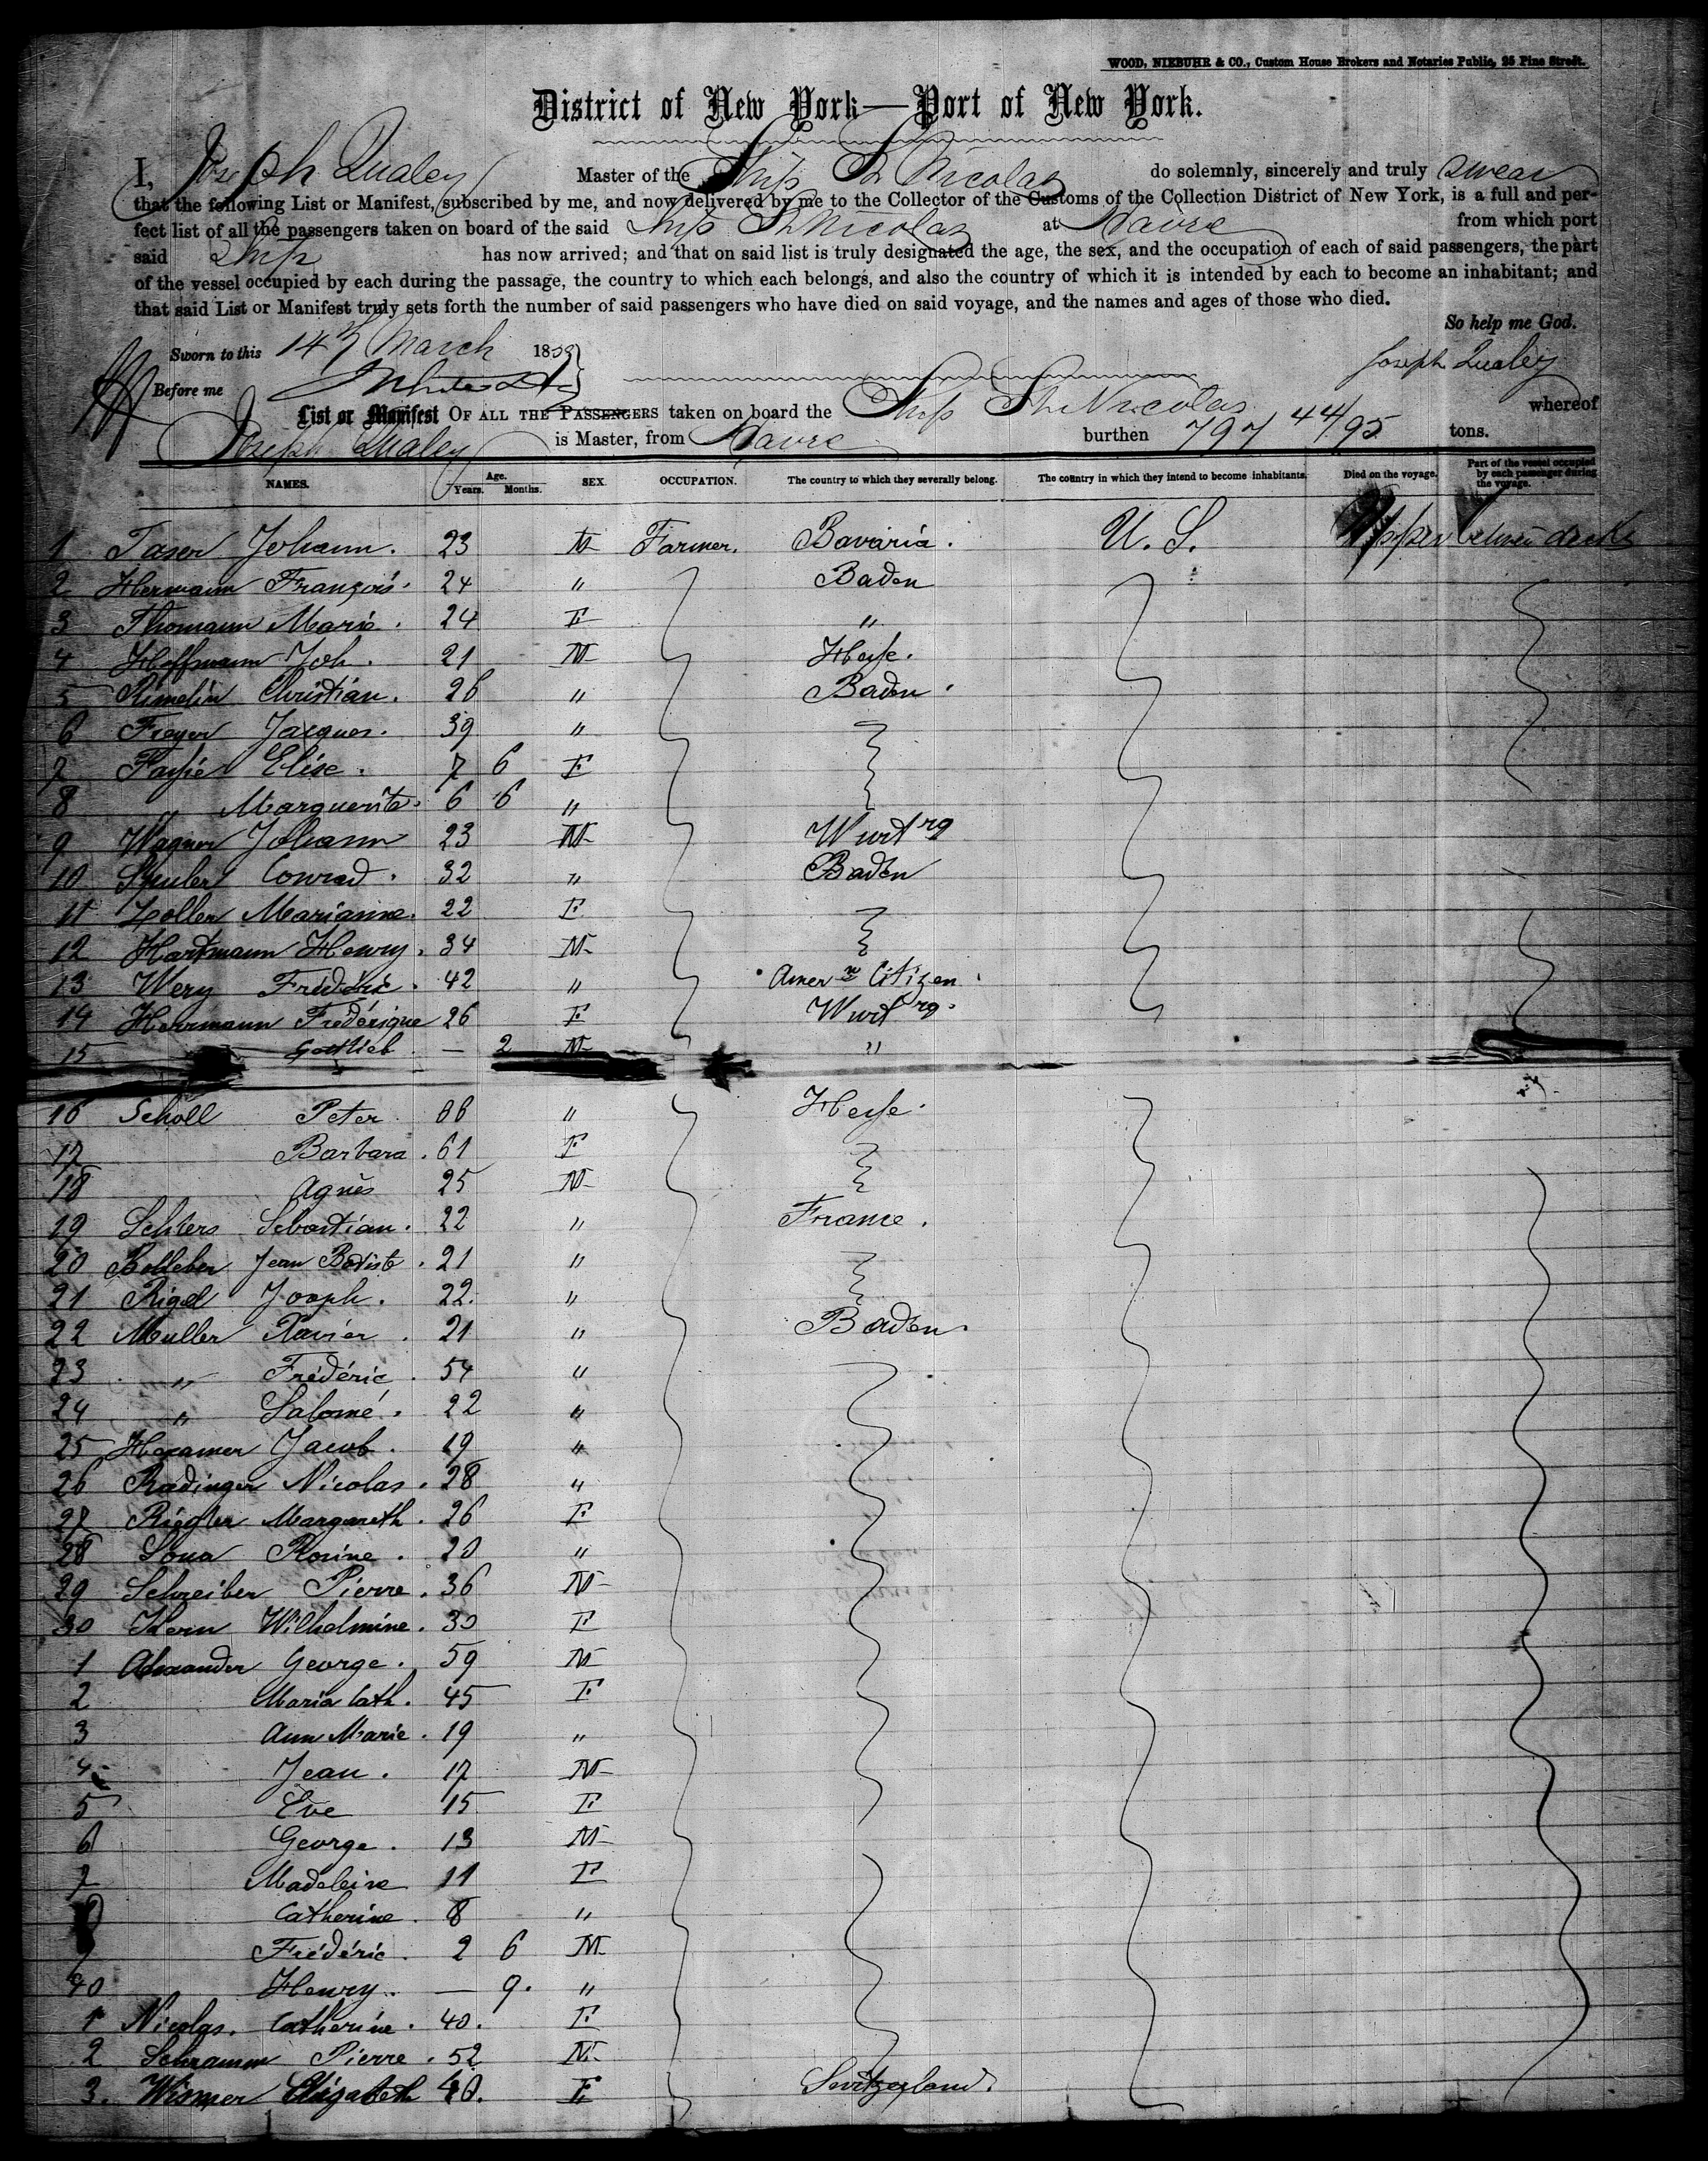 WOOD, NIEBUHR & CO., Custom House Brokers and Notaries Public, 25 Pine Street.
District of New York—Port of New York.
I, Joseph Qualey Master of the Ship St Nicolas do solemnly, sincerely and truly swear
that the following List or Manifest, subscribed by me, and now delivered by me to the Collector of the Customs of the Collection District of New York, is a full and per-
fect list of all the passengers taken on board of the said Ship St Nicolas at Havre from which port
said Ship has now arrived; and that on said list is truly designated the age, the sex, and the occupation of each of said passengers, the part
of the vessel occupied by each during the passage, the country to which each belongs, and also the country of which it is intended by each to become an inhabitant; and
that said List or Manifest truly sets forth the number of said passengers who have died on said voyage, and the names and ages of those who died.
So help me God.
Sworn to this 14th March 185
Joseph Qualey
Before me
List or Manifest OF ALL THE PASSENGERS taken on board the Ship St Nicolas whereof
Joseph Qualey is Master, from Havre burthen 797 44/95 tons.
NAMES. Age. Years. Months. SEX. OCCUPATION. The country to which they severally belong. The country in which they intend to become inhabitants. Died on the voyage. Part of the vessel occupied by each passenger during the voyage.
1 Taser Johann. 23 M Farmer. Bavaria. U.S. Upper between decks
2 Hermann François. 24 " Baden
3 Thomann Marie. 24 F "
4 Hoffmann Joh. 21 M Hesse.
5 Rimelin Christian. 26 " Baden.
6 Freyer Jacques. 39 "
7 Elise. 7 6 F
8 " Marguerite. 6 6 "
9 Wagner Johann 23 M Wurtrg
10 Conrad. 32 " Baden
11 Zoller Marianne. 22 F
12 Hartmann Henry. 34 M
13 Wery Frédéric. 42 " Amern Citizen.
14 Herrmann Frédérique 26 F Wurtrg.
15 Gottlieb — 2 M "
16 Scholl Peter 66 " Hesse.
17 Barbara. 61 F
18 Agnès 25 M
19 Sebastian. 22 " France.
20 Bolleber Jean Batist. 21 "
21 Rigel Joseph. 22. "
22 Muller Xavier. 21 " Baden.
23 " Frédéric. 54 "
24 " Salomé. 22 "
25 Hexamer Jacob. 19 "
26 Radinger Nicolas. 28 "
27 Riegler Margareth. 26 F
28 Rosine. 20 "
29 Schreiber Pierre. 36 M
30 Kern Wilhelmine. 30 F
1 Alexander George. 59 M
2 Maria Cath. 45 F
3 Ann Marie. 19 "
4 Jean. 17 M
5 Eve 15 F
6 George. 13 M
7 Madeleine 11 F
Catherine. 8 "
9 Frédéric. 2 6 M
40 Henry. — 9. "
1 Nicolas. Catherine. 40. F
2 Schramm Pierre. 52 M
3. Wismer Elizabeth 40. F Switzerland.